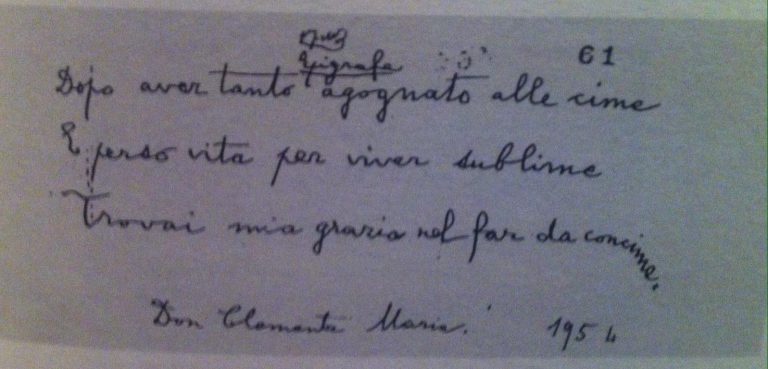 61
Epigrafe
Dopo aver tanto agognato alle cime
E perso vita per viver sublime
Trovai mia grazia nel far da concime.
Don Clemente Maria. 1954